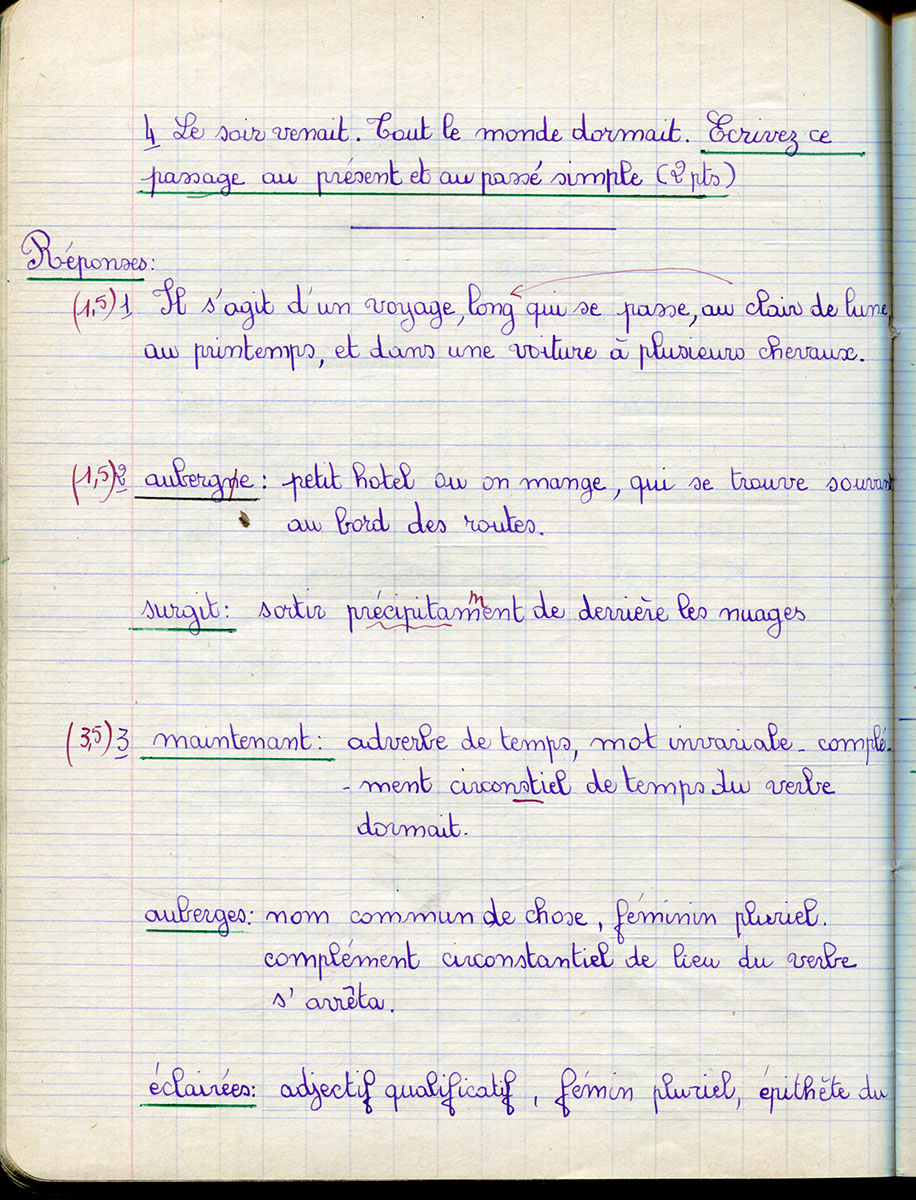 4 Le soir venait. Tout le monde dormait. Ecrivez ce
passage au présent et au passé simple (2 pts)
Réponses:
(1,5) 1 Il s'agit d'un voyage, long qui se passe, au clair de lune,
au printemps, et dans une voiture à plusieurs chevaux.
(1,5) 2 auberge : petit hotel ou on mange, qui se trouve souvent
au bord des routes.
surgit: sortir précipitamment de derrière les nuages
(3,5) 3 maintenant: adverbe de temps, mot invariable - complé-
- ment circonstiel de temps du verbe
dormait.
auberges: nom commun de chose, féminin pluriel.
complément circonstantiel de lieu du verbe
s'arrêta.
éclairées: adjectif qualificatif, fémin pluriel, épithète du